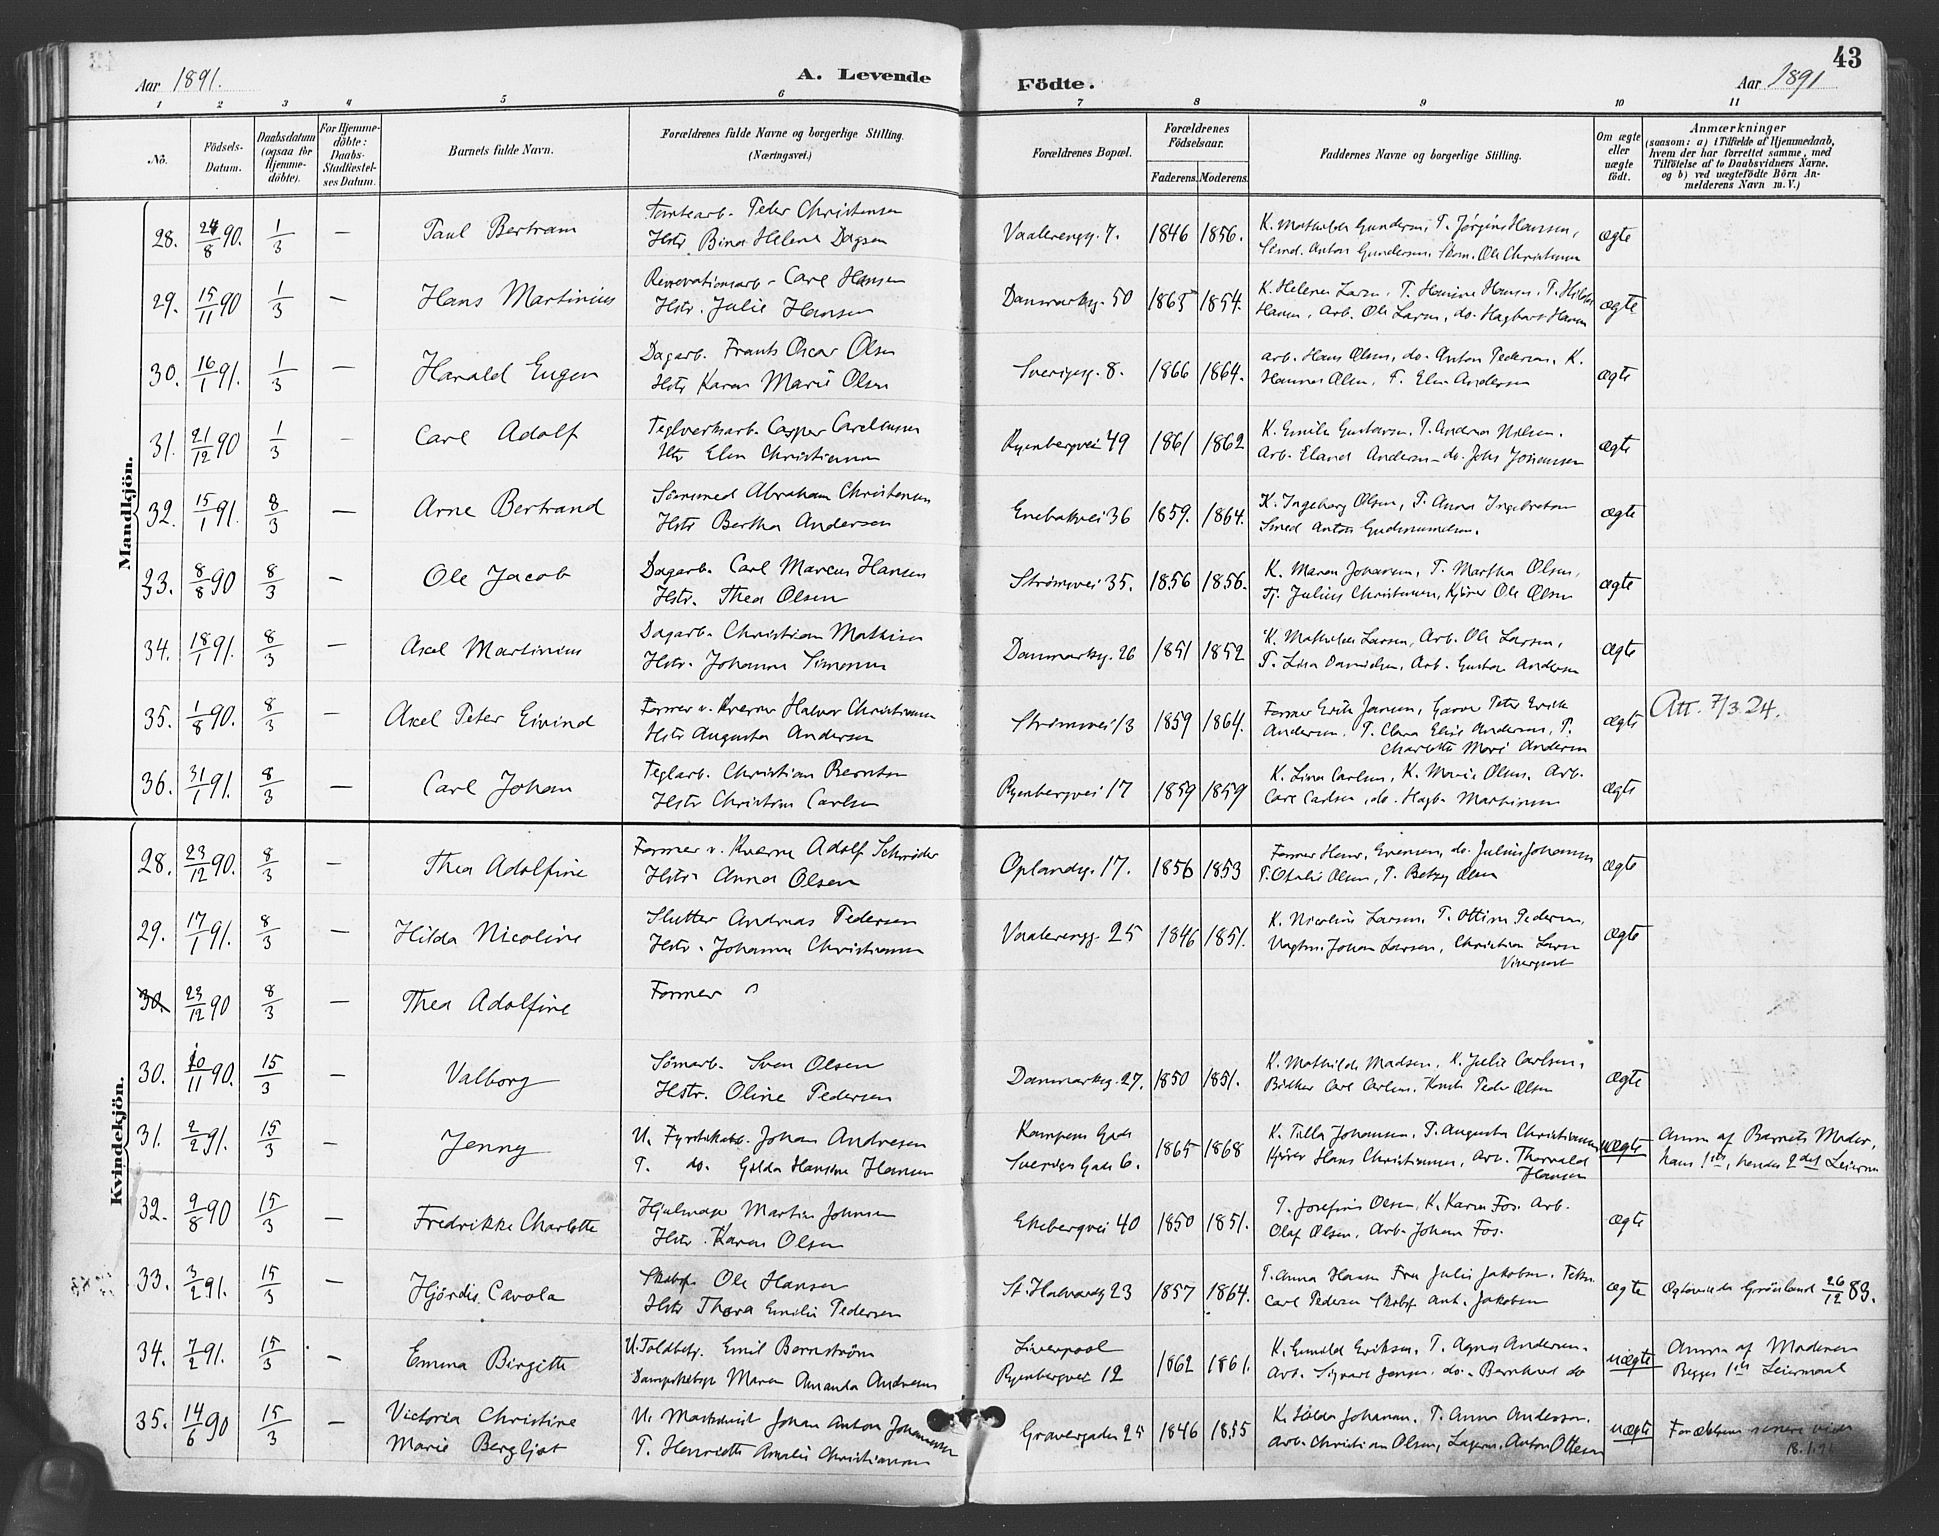 43
Aar 1891.
A. Levende Födte.
Aar 1891
1 2 3 4 5 6 7 8 9 10 11
No.
Födsels-Datum.
Daabsdatum (ogsaa for Hjemme-döbte).
For Hjemme-döbte: Daabs-Stadfæstel-ses Datum.
Barnets fulde Navn.
Forældrenes fulde Navne og borgerlige Stilling. (Næringsvei.)
Forældrenes Bopæl.
Forældrenes Födselsaar.
Faderens. Moderens.
Faddernes Navne og borgerlige Stilling.
Om ægte eller uægte födt.
Anmærkninger
(saasom: a) i Tilfælde af Hjemmedaab, hvem der har forrettet samme, med Tilföielse af to Daabsvidners Navne, og b) ved uægtefödte Börn An-melderens Navn m. V.)
Mandkjön.
28. 24/8 90. 1/3 — Paul Bertram
Peder Christensen
Hstr Bina Helene Dagsen
Vaalerengg. 7. 1846 1856.
K. Mathilde Gundersen, T. Jørgine Hansen,
Smed. Anton Gundersen, Ole Christiansen
ægte
29. 15/11 90 1/3 — Hans Martinius
Renovationsarb. Carl Hansen
Hstr. Julie Hansen
Danmarksg. 50 1865 1854.
K. Helene Larsen, T. Hansine Hansen, T. Hilda
Hansen, Arb. Ole Larsen, do. Hagbart Hansen
ægte
30. 16/1 91. 1/3 — Harald Eugen
Dagarb. Frants Oscar Olsen
Hstr Karen Marie Olsen
Sverigesg. 8. 1866 1864.
Arb. Hans Olsen, do. Anton Pedersen, K.
Hanna Olsen, T. Elen Andersen
ægte
31. 21/12 90 1/3 — Carl Adolf
Teglverksarb. Casper Carelinsen
Hstr Elen Christiansen
Ryenbergvei 49 1861 1862
K. Emilie Gustavsen, T. Andrea Nilsen,
Arb. Eland Andersen, do. Johs Johansen
ægte
32. 15/1 91. 8/3 — Arne Bertrand
Sömsmed Abraham Christensen
Hstr Bertha Andersen
Enebakvei 36 1859. 1864.
K. Ingeborg Olsen, T. Anna Ingebretsen
Smed Anton Gudmundsen.
ægte
33. 8/8 90 8/3 — Ole Jacob
Dagarb. Carl Marcus Hansen
Hstr. Thea Olsen
Strömsvei 35. 1856 1856.
K. Maren Johansen, T. Martha Olsen,
Tj. Julius Christensen, Kjörer Ole Olsen
ægte
34. 18/1 91. 8/3 — Axel Martinius
Dagarb. Christian Mathisen
Hstr. Johanne Simonsen
Danmarksg. 26 1851 1852
K. Mathilde Larsen, Arb. Ole Larsen,
T. Lina Danielsen, Arb. Gustav Andersen
ægte
35. 1/8 90. 8/3 — Axel Peter Eivind
Former v. Kværner Halvor Christiansen
Hstr Augusta Andersen
Strömsvei 13 1859 1864.
Former Erik Jansen, Garver Peter Erik
Andersen, T. Clara Elise Andersen, T.
Charlotte Marie Andersen
ægte Att. 7/3 24.
36. 31/1 91. 8/3 — Carl Johan
Teglarb. Christian Berntsen
Hstr Christine Carlsen
Ryenbergvei 17 1859 1859
K. Lina Carlsen, K. Marie Olsen, Arb.
Carl Carlsen, do. Hagb. Martinsen
ægte
Kvindekjön.
28. 23/12 90. 8/3 — Thea Adolfine
Former v. Kværner Adolf Schrøder
Hstr. Anna Olsen
Oplandg. 17. 1856 1853
Former Henr. Evensen, do. Julius Johansen
T. Othalie Olsen, T. Betzy Olsen
ægte
29. 17/1 91. 8/3 — Hilda Nicoline
Slutter Andreas Pedersen
Hstr. Johanne Christiansen
Vaalerengg. 25 1846 1851.
K. Nicoline Larsen, T. Ottine Pedersen,
Vagtm. Johan Larsen, Christian Larsen
ægte
30. 23/12 90 8/3 — Thea Adolfine
Former
30. 10/11 90. 15/3 — Valborg
Sömarb. Sven Olsen
Hstr. Oline Pedersen
Danmarksg. 27. 1850 1851.
K. Mathilde Madsen, K. Julie Carlsen,
Bödker Carl Carlsen, Kusk Peder Olsen
ægte
31. 2/2 91. 15/3 — Jenny
U. Fyrstikarb. Johan Andresen
T. do. Gilda Hansine Hansen
Kampens Gade
Sveriges Gade 6. 1865 1868
K. Tilla Johansen, T. Augusta Christiansen
Kjörer Hans Christiansen, Arb. Thorvald
Hansen
uægte
Anm. af Barnets Moder,
hans 1ste, hendes 2det Leierm.
32. 9/8 90 15/3 — Fredrikke Charlotte
Hjulmager Martin Johnsen
Hstr. Karen Olsen
Ekebergvei 40 1850 1851.
T. Josefine Olsen, K. Karen Fos. Arb.
Olaf Olsen, Arb. Johan Fos.
ægte
33. 3/2 91. 15/3 — Hjördis Carola
Skobsf. Ole Hansen
Hstr Thora Emilie Pedersen
St. Halvardg 23 1857 1864.
T. Anna Hansen Fru Julie Jakobsen. Tekn.
Carl Pedersen Skobsf. Ant. Jakobsen
ægte
Ægteviede Grönland 26/12 83.
34. 7/2 91. 15/3 — Emma Birgitte
U. Toldbetj. Emil Bernström
Maren Amanda Andresen
Liverpool
Ryenbergvei 12 1862 1861.
K. Gunild Eriksen, T. Agnes Andersen.
Arb. Sigvart Jensen, do. Bernhard do
uægte
Anm. af Moderen
Begges 1ste Leiermaal
35. 14/6 90 15/3 — Victoria Christine
Marie Bergljot
U. Johan Anton Johannesen
T. Henriette Amalie Christiansen
Gravergaden 25 1846 1855
K. Hilda Johansen, T. Anna Anderson.
Arb. Christian Olsen, Lagerm. Anton Ottesen
uægte
Forældrene senere viet
18.1.91